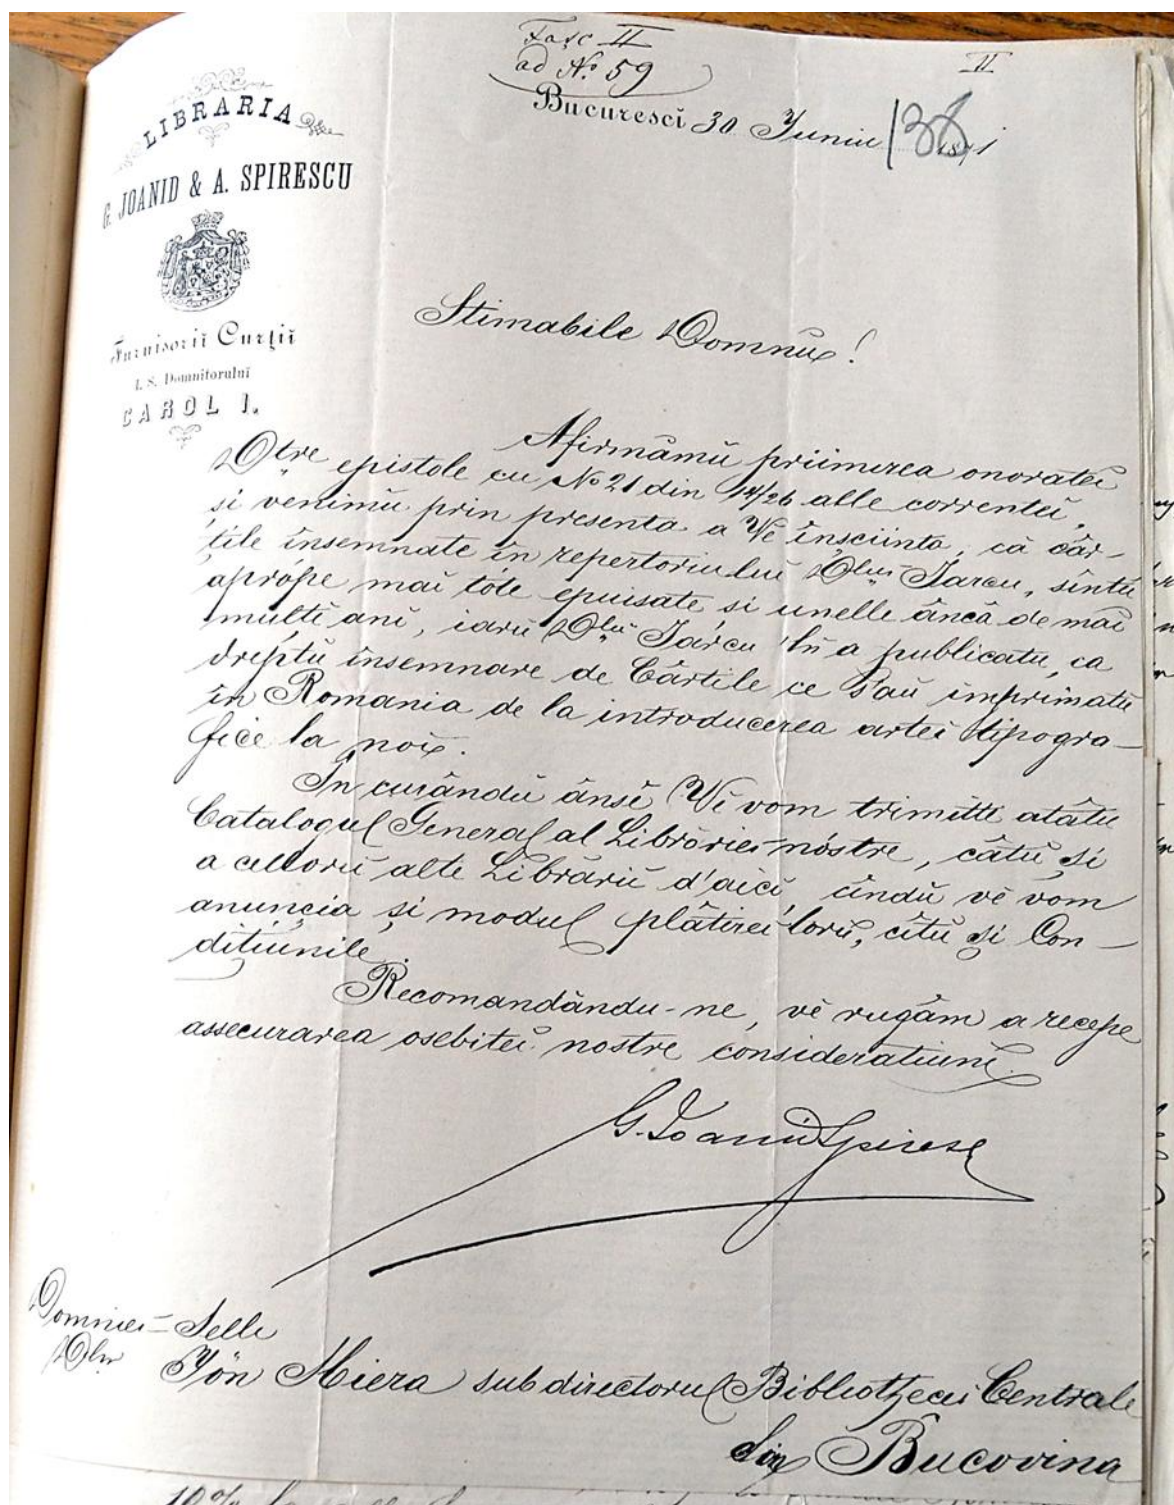 Fasc II
ad No. 59
II
Bucuresci 30 Juniu 1871
LIBRARIA
G. JOANID & A. SPIRESCU
Furnisorii Curții
I. S. Domnitorului
CAROL I.
Stimabile Domnu!
Afirmâmŭ priimirea onoratei
Dtre epistole cu No 21 din 14/26 alle correntei,
si venimŭ prin presenta a Ve însciinta, că căr-
țile însemnate în repertoriulŭi Dlui Iarcu, sîntŭ
aprópe mai tóte epuisate si unelle âncă de mai
multi ani, iarŭ Dlŭ Iarcu 'lŭ a publicatŭ, ca
dreptŭ însemnare de Cărtile ce s'aŭ imprimatŭ
în Romania de la introducerea artei tipogra-
fice la noi.
In curândŭ ânsĕ Ve vom trimitte atâtŭ
Catalogul General al Librăriei nóstre, câtŭ și
a cellorŭ alte Librăriĭ d'aici, cîndŭ vĕ vom
anunția și modul plătirei lorŭ, câtŭ și Con-
ditiunile.
Recomandându-ne, vĕ rugăm a recepe
assecurarea osebitei nostre consideratiuni.
G. Ioanid Spirescu
Domniei-Selle
Dlui
Iôn Miera subdirectorul Bibliothecei Centrale
din Bucovina
10%